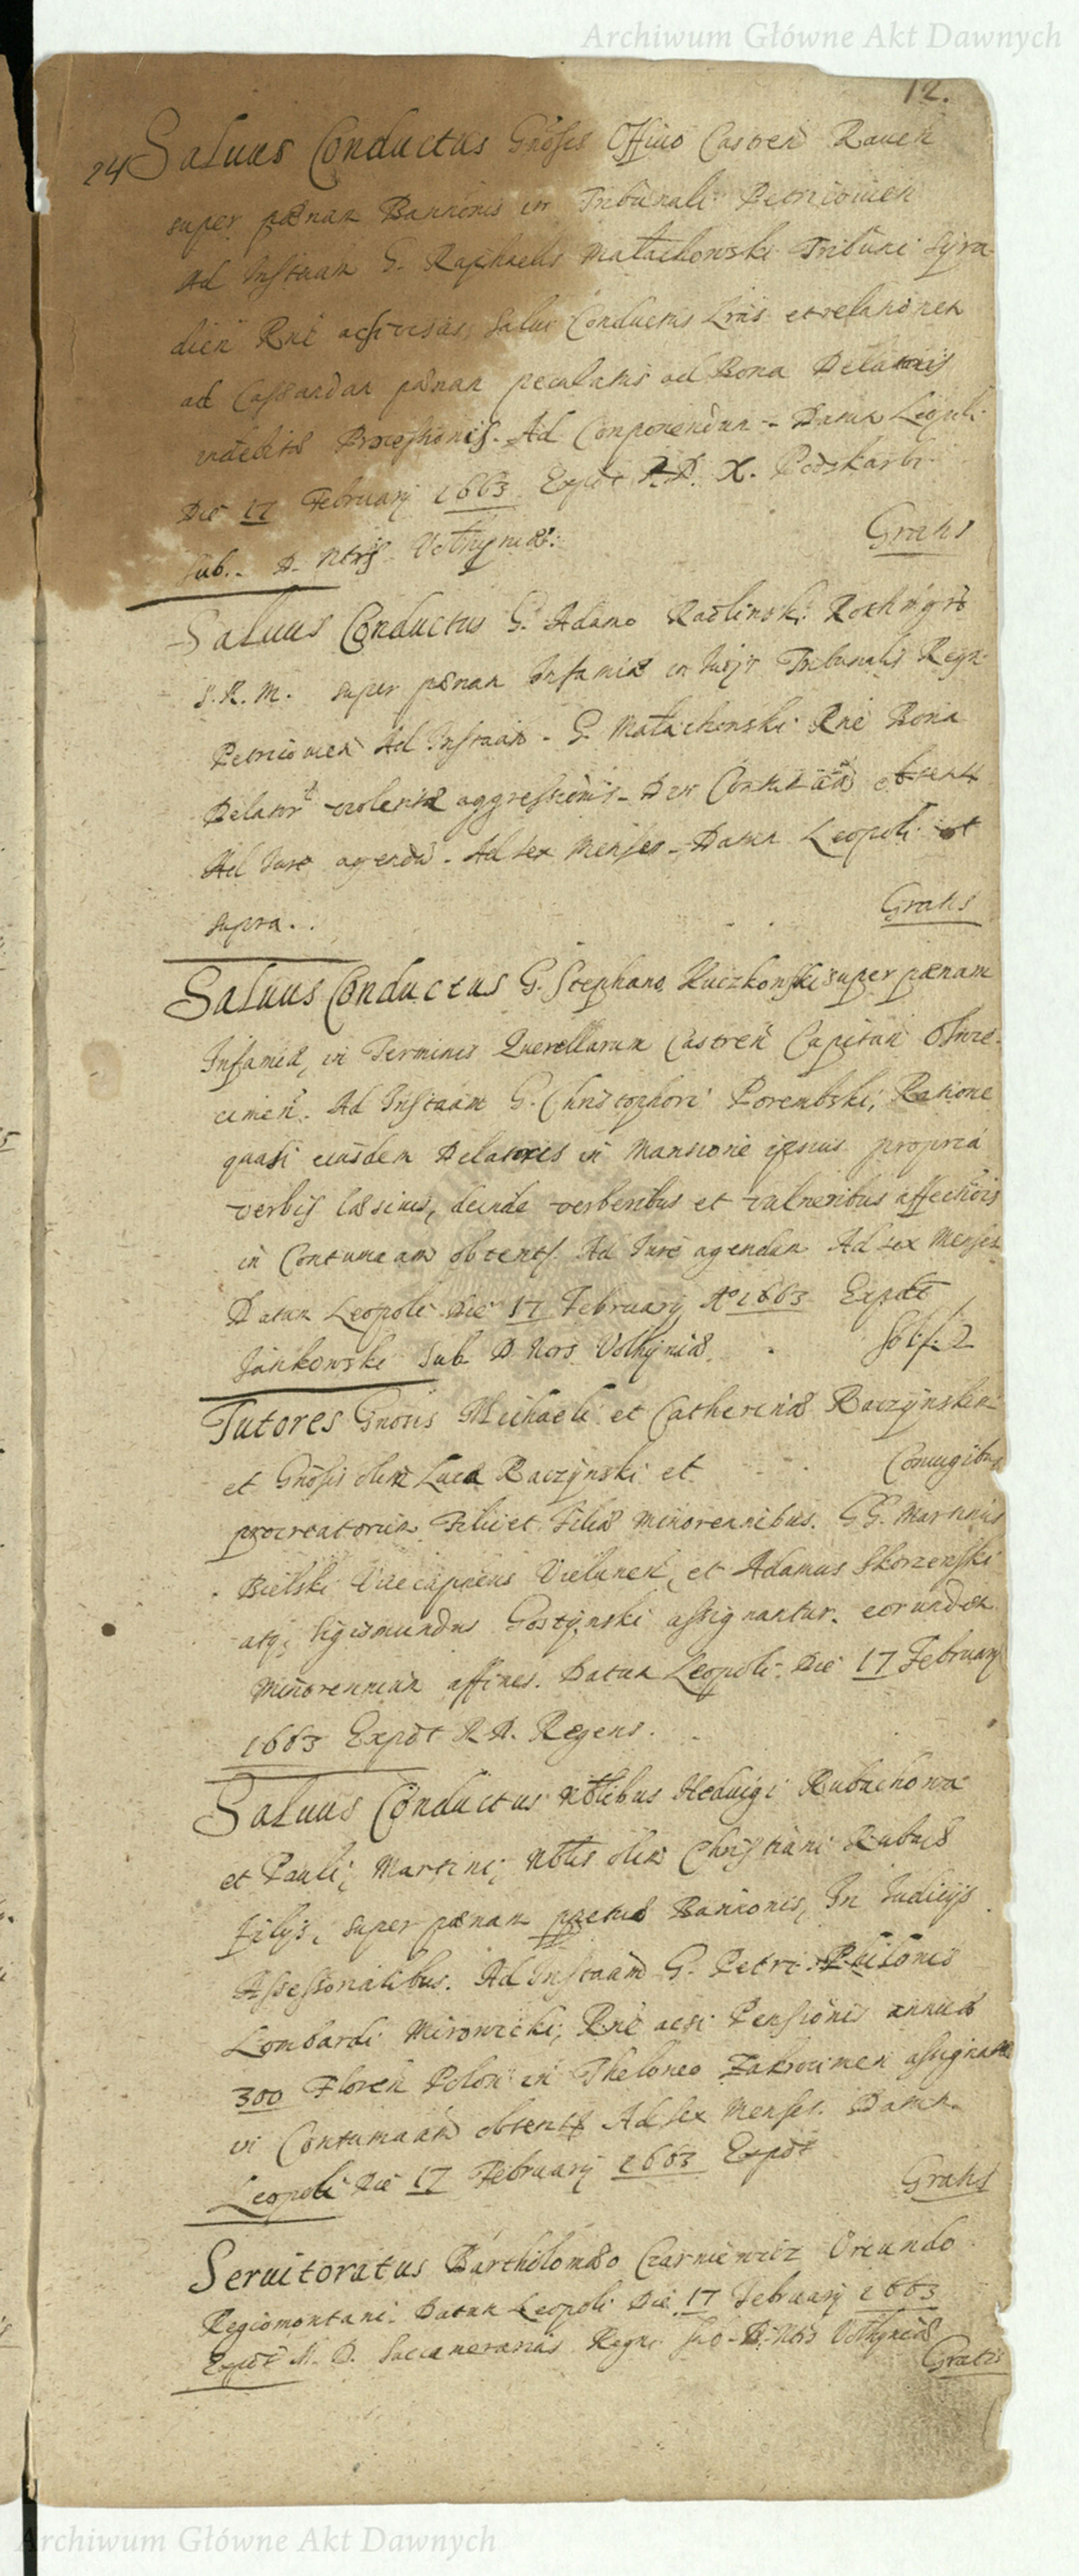 Archiwum Główne Akt Dawnych
12.
24 Saluus Conductus Gnosis Officio Castren Raven
super pænam Bannionis in Tribunali Petricouien
Ad Instaan G. Raphaelis Małachowski Tribuni Syra
dien Rne Salui Conductus Lris et relationem
ad Cassandam pænam peculatus ad Bona Delatoris
Ad Componendum - Datum Leopoli
Die 17 February 1663 Expdt R.D. X. Podskarbi
Sub. D. Ntrs Volhyniæ:
Gratis
Saluus Conductus G. Adamo Radlinski Rothmgro
S.R.M. super pænam Infamiæ in Tribunalis Regn
Petricouien Ad Instaan - G. Małachowski Rne Bona
Delator violentæ aggressionis - Obtent
Ad Jure agendu - Ad sex Menses - Datum Leopoli ut
supra..
Gratis
Saluus Conductus G. Stephano Kuczkowski super pænam
Infamiæ, in Terminis Querellarum Castren Capitan Oswie-
cimen. Ad Instaam G. Christophori Porembski, Ratione
quasi eiusdem Delatoris in Mansione ipsius propria
verbis læsiuis, deinde verberibus et vulneribus affectionis
in Contumaam obtent. Ad Jure agendum Ad sex Menses
Datum Leopoli Die 17 February Ao 1663 Expdt
Jankowski Sub D Ntrs Volhyniæ.
Sol. f. 2
Tutores Gnosis Michaeli et Catherinæ Raczÿnskim
Coniugibus
et Gnosis olim Luca Raczÿnski et
procreatorum Filii et Filiæ Minorennibus. GG. Martinus
Bielski Vicecapneus Vielunen, et Adamus Skorzenski
atq, Sigismundus Gostÿnski assignantur. eorundem
Minorennium affines. Datum Leopoli. Die 17 February
1663 Expdt R.D. Regens.
Saluus Conductus Nblibus Heduigi Kubachowa
et Pauli, Martini, Nblis olim Christiani Kubas
filÿs, super pænam ppetuæ Bannionis, In Judicÿs
Assessorialibus. Ad Instaam G. Petri Philonis
Lombardi Mirowicki, Rne Pensionis annuæ
300 Floren Polon in Theloneo Zakrocimen assignatæ
in Contumaam obtent Ad sex Menses. Datum
Leopoli Die 17 February 1663 Expdt
Gratis
Seruitoratus Bartholomæo Czarniewicz Oriundo
Regiomontani. Datum Leopoli Die 17 February 1663
Expdt M. D. Succamerarius Regni Sub D. Ntrs Volhyniæ
Gratis
Archiwum Główne Akt Dawnych